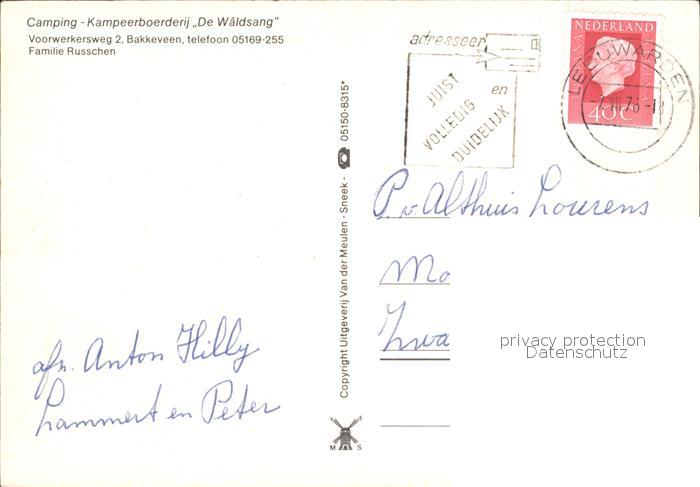 Camping - Kampeerboerderij „De Wâldsang"
Voorwerkersweg 2, Bakkeveen, telefoon 05169-255
Familie Russchen
adresseer
JUIST
VOLLEDIG
en
DUIDELIJK
NEDERLAND
40c
LEEUWARDEN
-7.VII.76-
P. v. Althuis Lourens
Mo
Zwa
privacy protection
Datenschutz
afz. Anton Hilly
Lammert en Peter
Copyright Uitgeverij Van der Meulen - Sneek - ☎ 05150-8315*
v d
M S